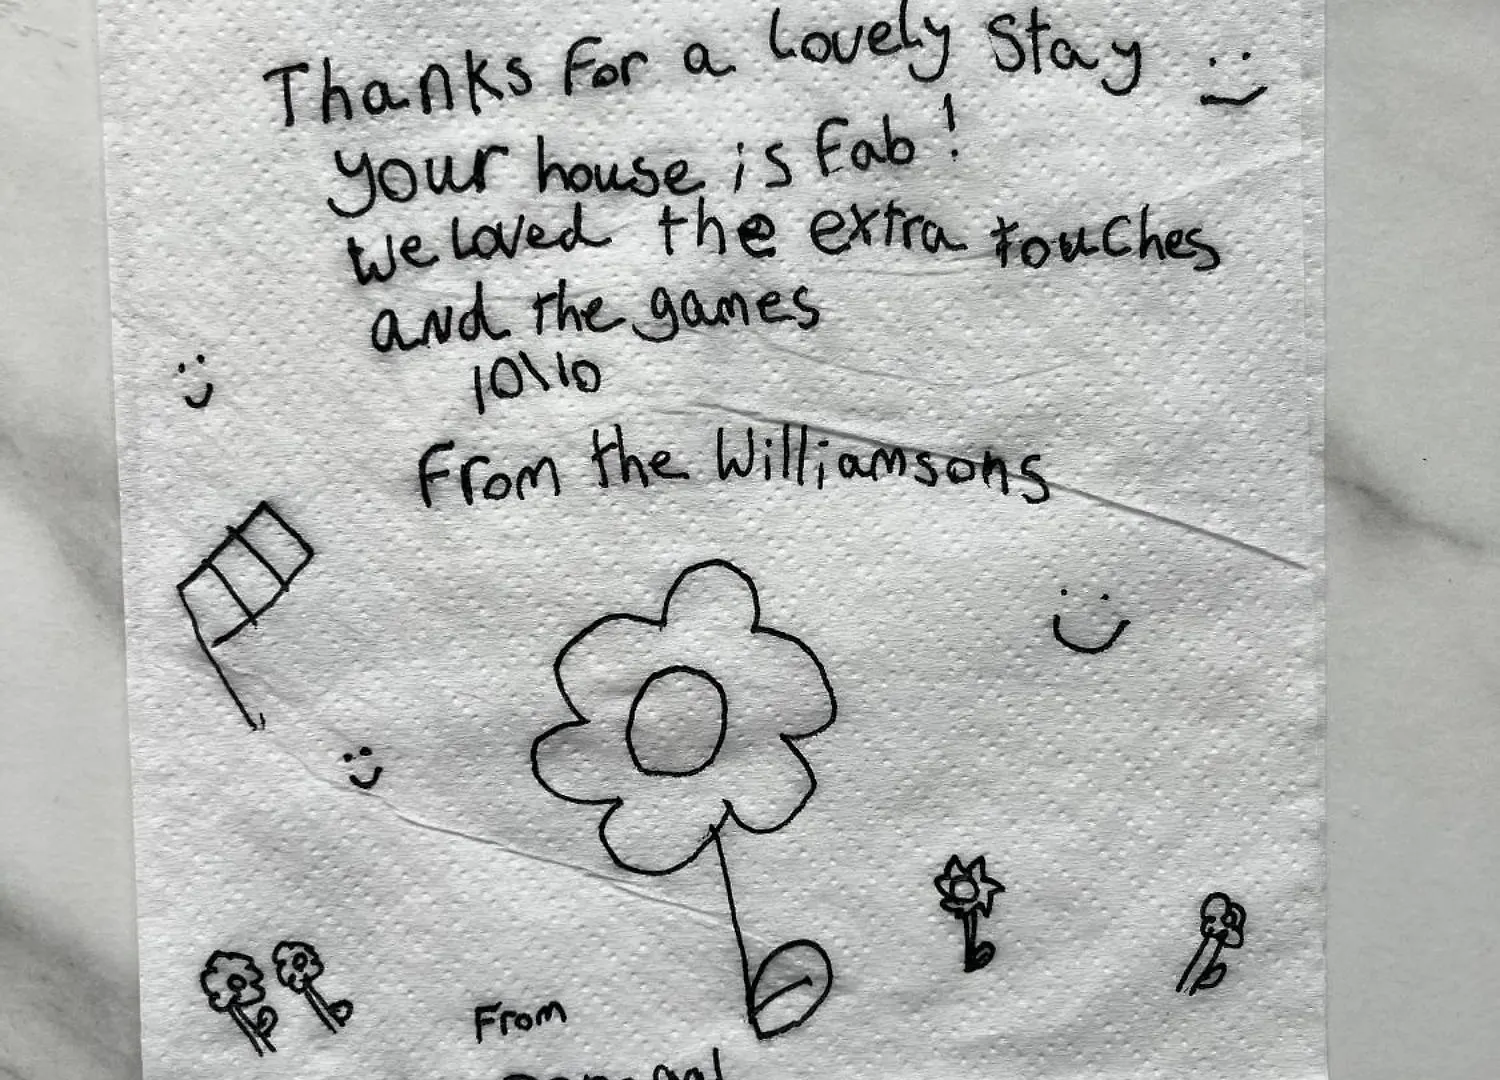 Thanks For a Lovely Stay
your house is Fab!
we loved the extra touches
and the games
10\10
From the Williamsons
From